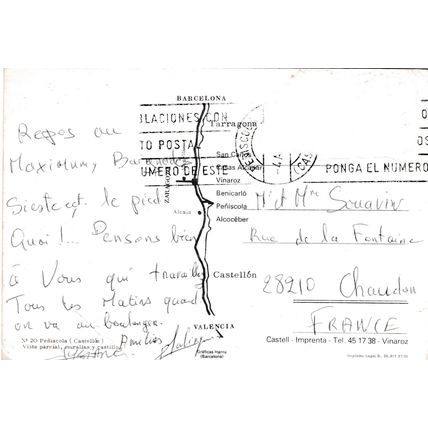 BARCELONA
BLACIONES CON
TO POSTA
NUMERO DE ESTE
PONGA EL NUMERO
Tarragona
San Carlos
Casas Alcanar
Vinaroz
Benicarló
Peñíscola
Alcocéber
Castellón
VALENCIA
ZARAGOZA
Alcalá
Repos au
Maximum,
Sieste et le pied
Quoi !... Pensons bien
à Vous qui travaillez
Tous les Matins quand
on va au boulanger.
Amitiés
M. et Mme
Rue de la Fontaine
28210 Chaudon
FRANCE
Nº 20 Peñíscola (Castellón)
Vista parcial, murallas y castillo
Gráficas Iharra
(Barcelona)
Castell - Imprenta - Tel. 45 17 38 - Vinaroz